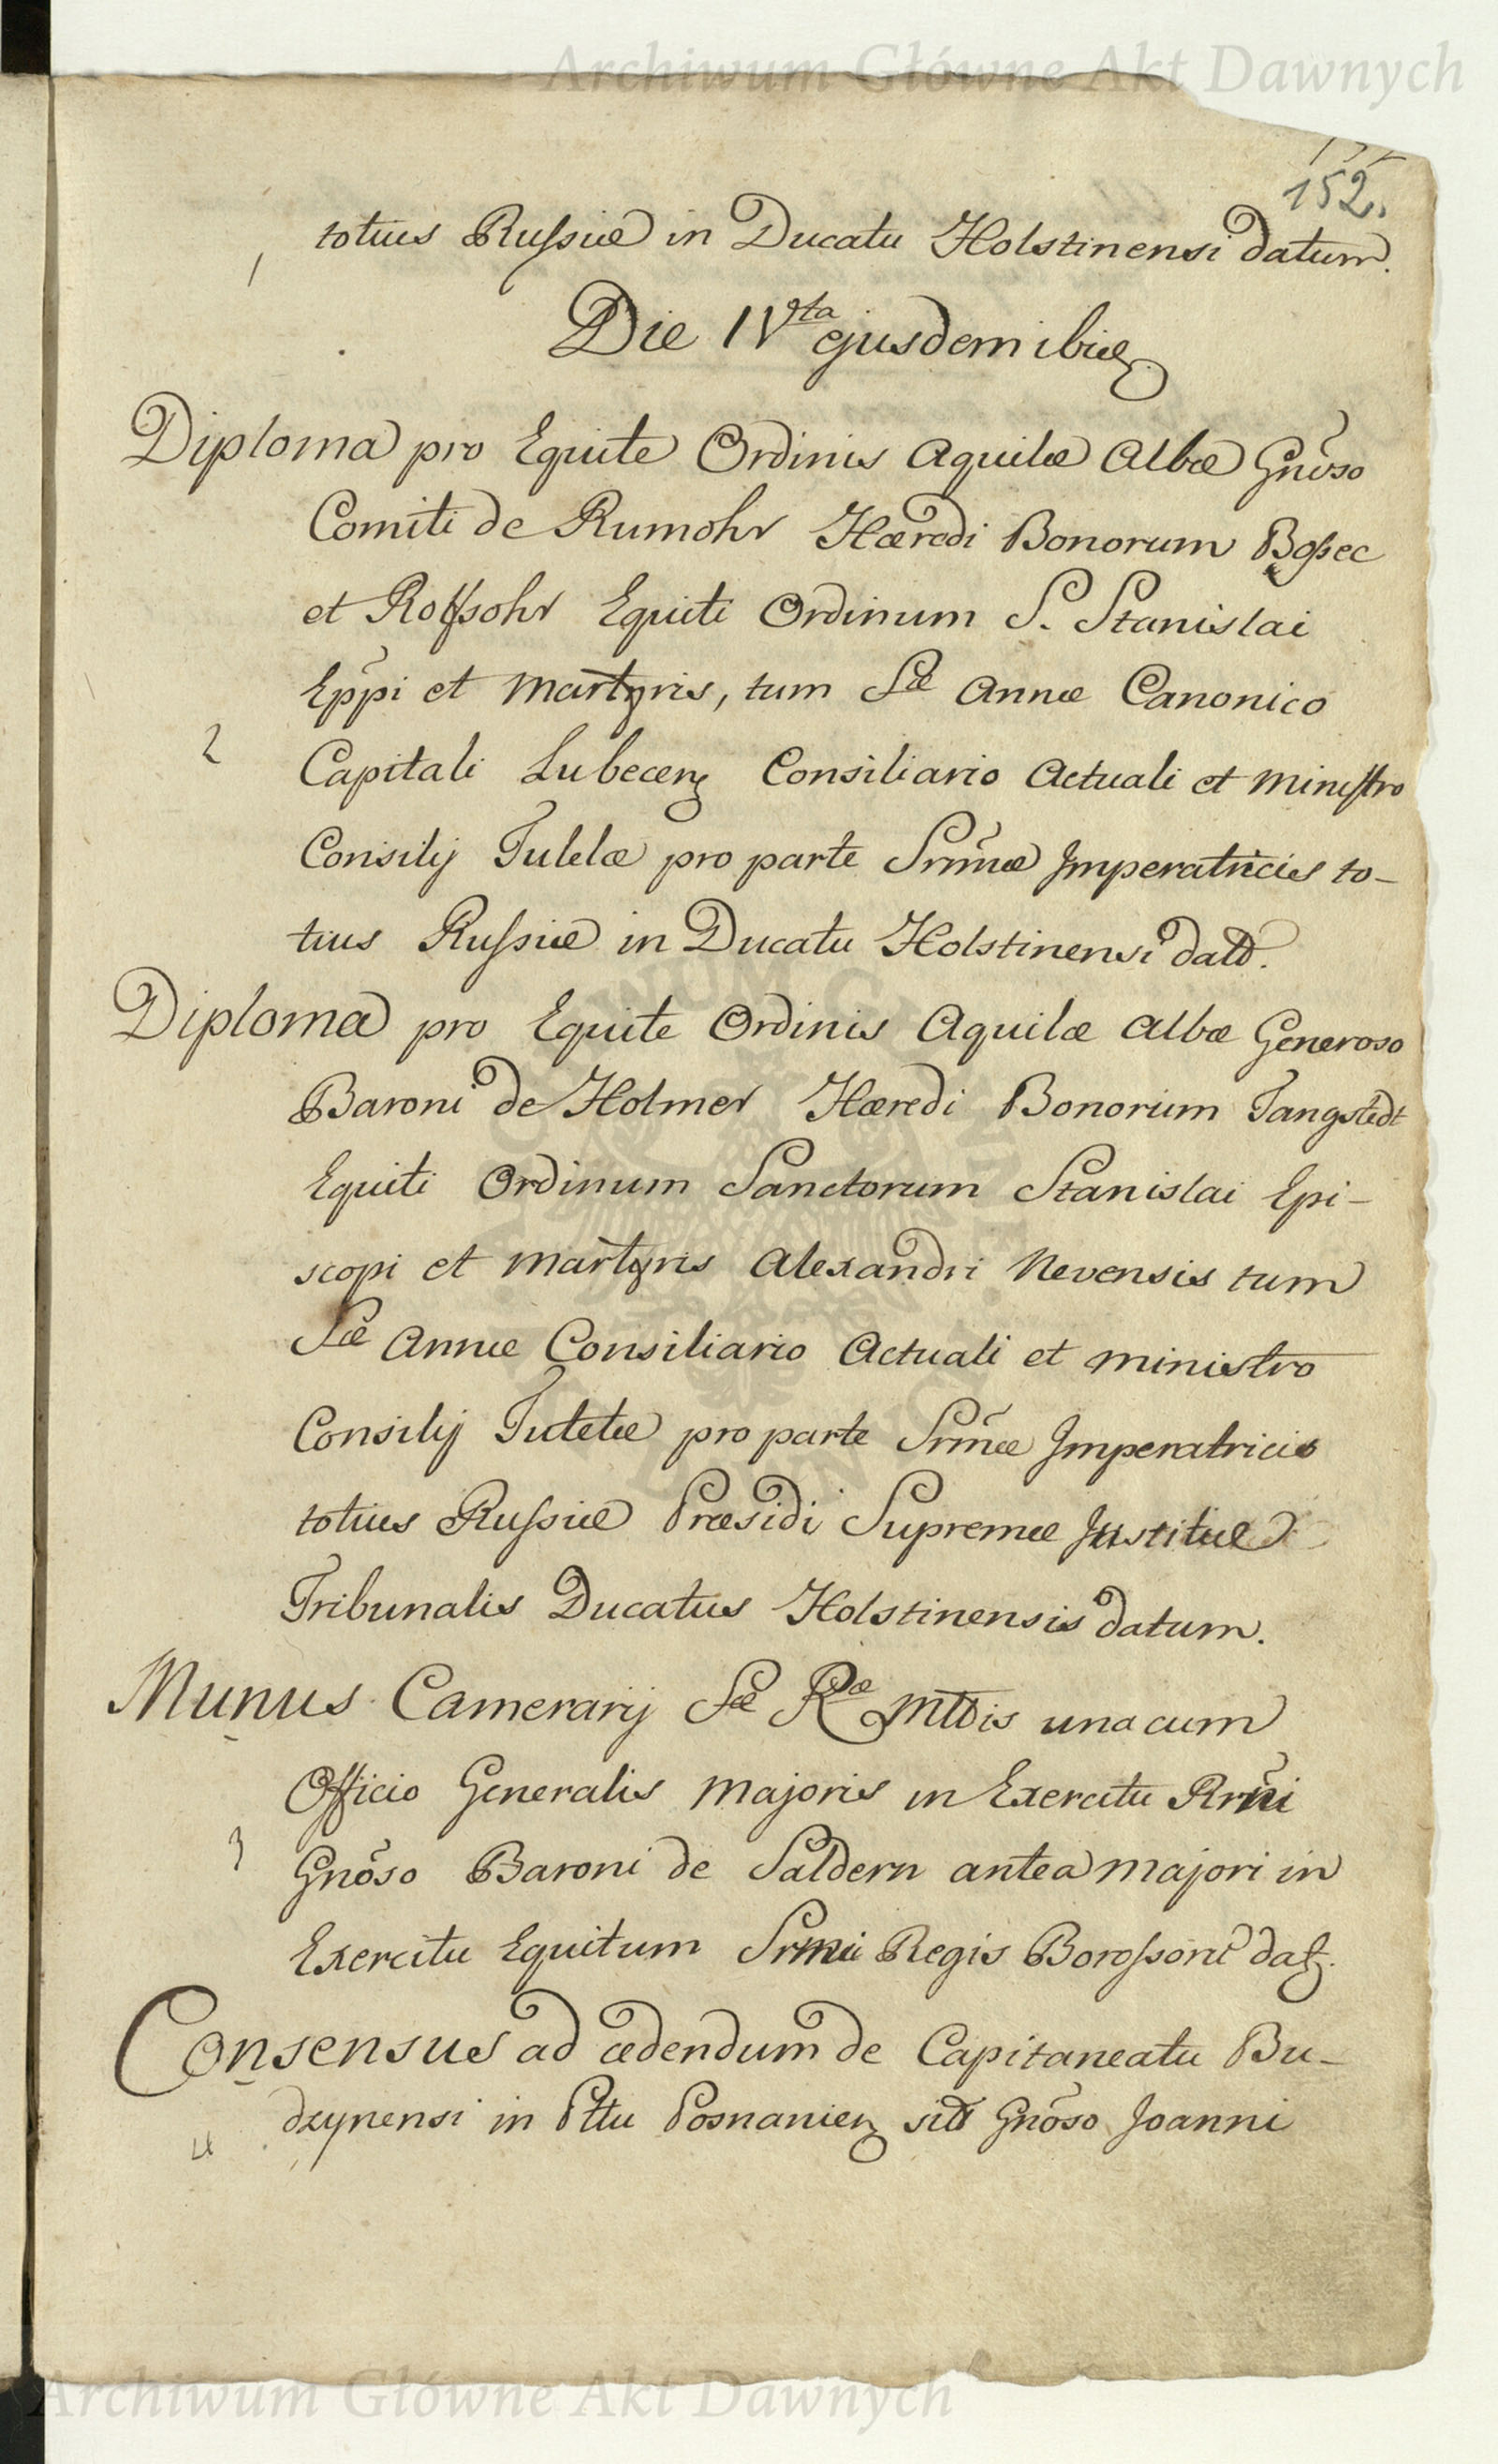 Archiwum Główne Akt Dawnych
152.
totius Russiæ in Ducatu Holstinensi datum.
1
Die IVta ejusdem ibid
Diploma pro Equite Ordinis Aquilæ Albæ Gnõso
Comiti de Rumohr Hæredi Bonorum Bossec
et Rolfsohr Equiti Ordinum S. Stanislai
Eppi et Martyris, tum Sæ Annæ Canonico
2
Capitali Lubecen Consiliario Actuali et Ministro
Consilij Tutelæ pro parte Srmæ Imperatricis to-
tius Russiæ in Ducatu Holstinensi datt.
Diploma pro Equite Ordinis Aquilæ Albæ Generoso
Baroni de Holmer Hæredi Bonorum Tangstedt
Equiti Ordinum Sanctorum Stanislai Epi-
scopi et Martyris Alexandri Nevensis tum
Sæ Annæ Consiliario Actuali et Ministro
Consilij Tutelæ pro parte Srmæ Imperatricis
totius Russiæ Præsidi Supremæ Justitiæ
Tribunalis Ducatus Holstinensis datum.
Munus Camerarij Sæ Ræ Mttis una cum
Officio Generalis Majoris in Exercitu Rrni
3
Gnõso Baroni de Saldern antea Majori in
Exercitu Equitum Srmi Regis Borossorũ dat.
Consensus ad cedendum de Capitaneatu Bu-
dzynensi in Pttu Posnanien sitt Gnõso Joanni
4
Archiwum Główne Akt Dawnych